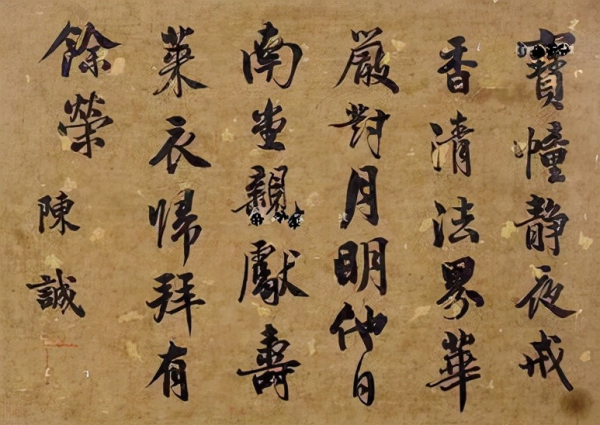 寶幢静夜戒
香清法界華
嚴對月明他日
南堂親獻壽
萊衣歸拜有
餘榮
陳誠